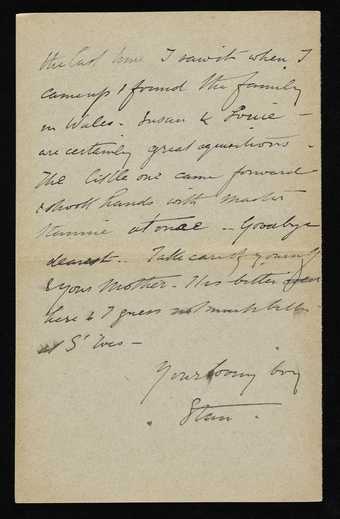 the last time I saw it when I
came up & found the family
in Wales. Susan & Louie –
are certainly great aquisitions.
The little one came forward
& shook hands with Master
Stannie at once .. Goodbye
dearest .. Take care of yourself
& your Mother. It is bitter
here & I guess not much better
at St Ives –
Your loving boy
Stan.